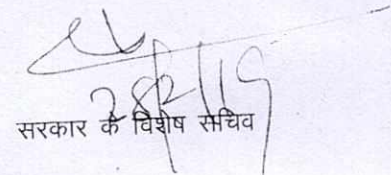 28/2/19
सरकार के विशेष सचिव